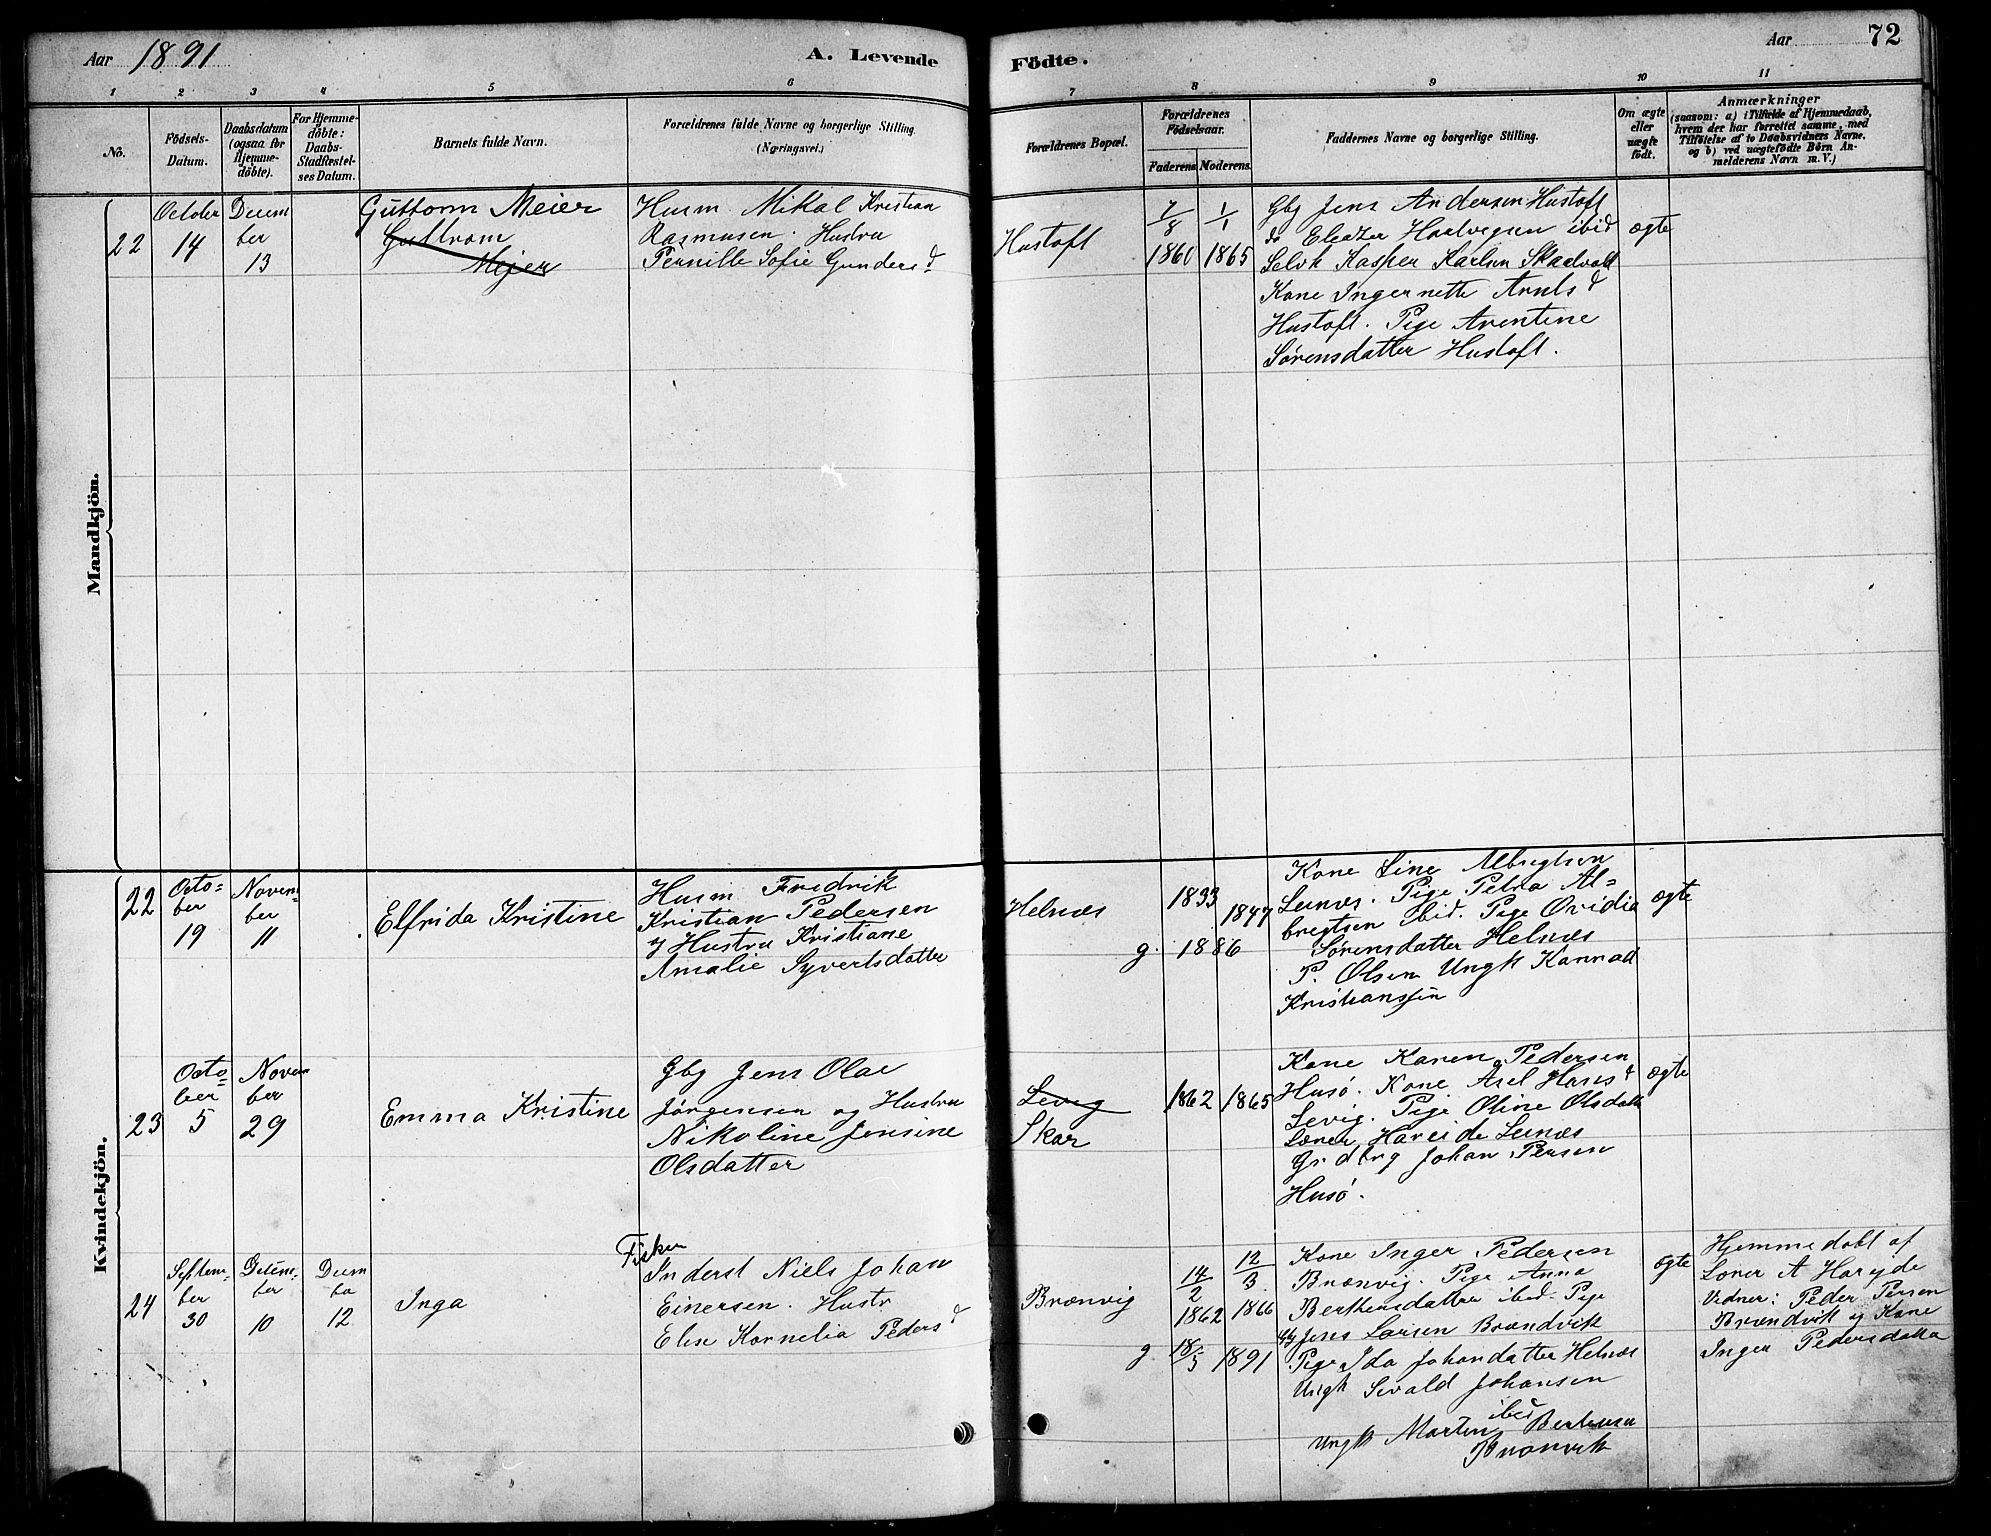 Aar 1891
A. Levende
Födte.
Aar
72
1 2 3 4 5 6 7 8 9 10 11
No.
Födsels-
Datum.
Daabsdatum
(ogsaa for
Hjemme-
döbte).
For Hjemme-
döbte:
Daabs-
Stadfæstel-
ses Datum.
Barnets fulde Navn.
Forældrenes fulde Navne og borgerlige Stilling.
(Næringsvei.)
Forældrenes Bopæl.
Forældrenes
Födselsaar.
Faderens Moderens
Faddernes Navne og borgerlige Stilling.
Om ægte
eller
uægte
födt.
Anmærkninger
(saasom: a) i Tilfælde af Hjemmedaab,
hvem der har forrettet samme, med
Tilföielse af to Daabsvidners Navne.
og b) ved uægtefödte Börn An-
melderens Navn m. V.)
Mandkjön.
22
October
14
Decem
ber
13
Guttorm Meier
Guttrom
Mejer
Husm. Mikal Kristian
Rasmusen. Hustru
Pernille Sofie Gundersd
Hustoft
7/8
1860
1/1
1865
Gbg Jens Andersen Hustoft
do Eleazer Hartvigsen ibid
Selvk Kasper Karlsen Skarvold
Kone Ingernette Arntsd
Hustoft. Pige Arentine
Sørensdatter Hustoft.
ægte
Kvindekjön.
22
Octo=
ber
19
Novem-
ber
11
Elfrida Kristine
Husm Fredrik
Kristian Pedersen
Hustru Kristiane
Amalie Syvertsdatter
Helnæs
1833
1847
g. 1886
Kone Line Albregtsen
Leinæs. Pige Petra Al=
bregtsen ibid. Pige Ovidia
Sørensdatter Helnæs
P. Olsen Ungk Konrad
Kristiansen
ægte
23
Octo=
ber
5
Novem
ber
29
Emma Kristine
Gbg Jens Olai
Jørgensen og Hustru
Nikoline Jensine
Olsdatter
Levig
Skar
1862
1865
Kone Karen Pedersen
Husö. Kone Axel Hansd
Levig. Pige Oline Olsdatt
Lærer Hareide Leinæs
Grdbrg Johan Persen
Husö.
ægte
24
Septem-
ber
30
ber
10
Decem
ber
12
Inga
Fisker
Inderst Niels Johan
Einersen. Hustr
Elen Kornelia Pedersd
Brænvig
14/2
1862
12/3.
1866
g. 18/5 1891
Kone Inger Pedersen
Brænvig. Pige Anna
Berthensdatter ibid. Pige
Gbg Jens Larsen Brændvik
Pige Ida Johandatter Helnæs
Ungk Sevald Johansen
ibid
Ungk Morten Bertensen
Brænvik
ægte
Hjemmedøbt af
Lærer A Harejde
Vidner: Peder Persen
Brændvik og Kone
Inger Pedersdatter